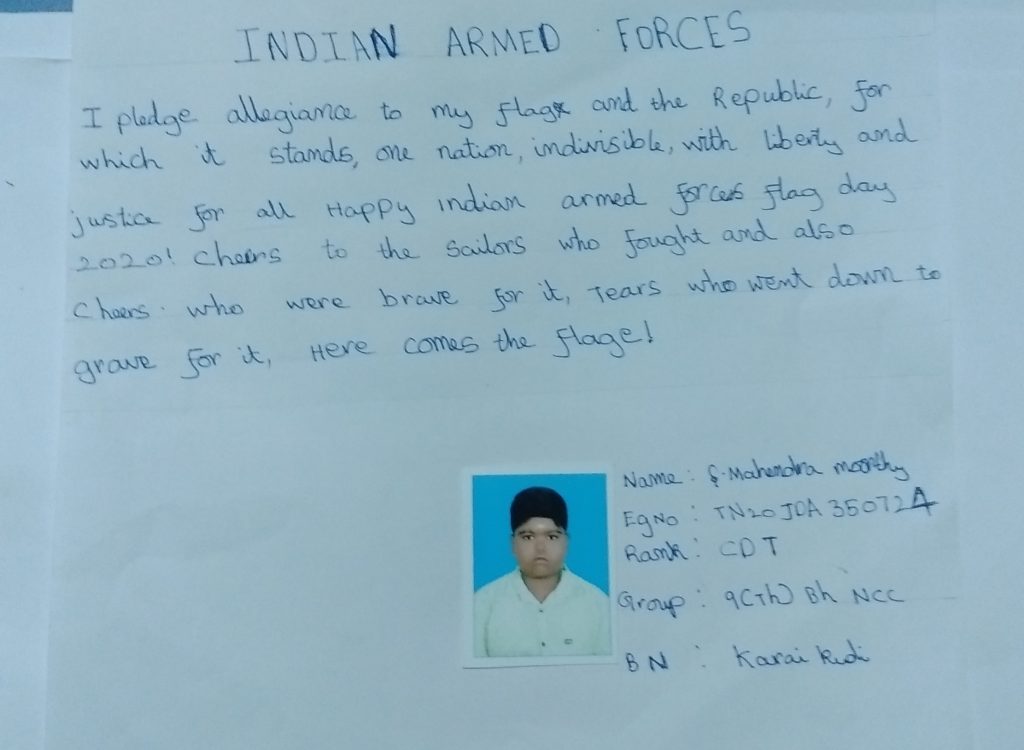 INDIAN ARMED FORCES
I pledge allegiance to my flag and the Republic, for
which it stands, one nation, indivisible, with liberty and
justice for all Happy indian armed forces flag day
2020! Cheers to the sailors who fought and also
Cheers. who were brave for it, Tears who went down to
grave for it, Here comes the flage!
Name : S. Mahendra moorthy
EgNo : TN20JDA 35072A
Rank : CDT
Group : 9(Th) Bn NCC
BN : Karai kudi